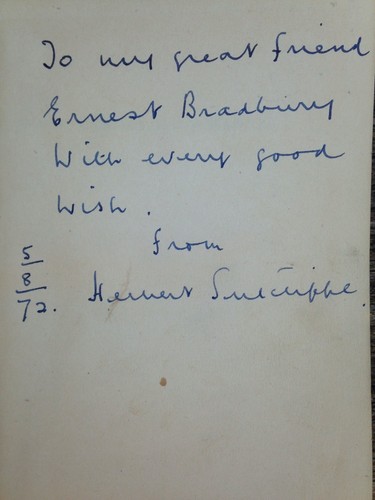 To my great friend
Ernest Bradbury
With every good
wish.
from
5
8
72.
Herbert Sutcliffe.